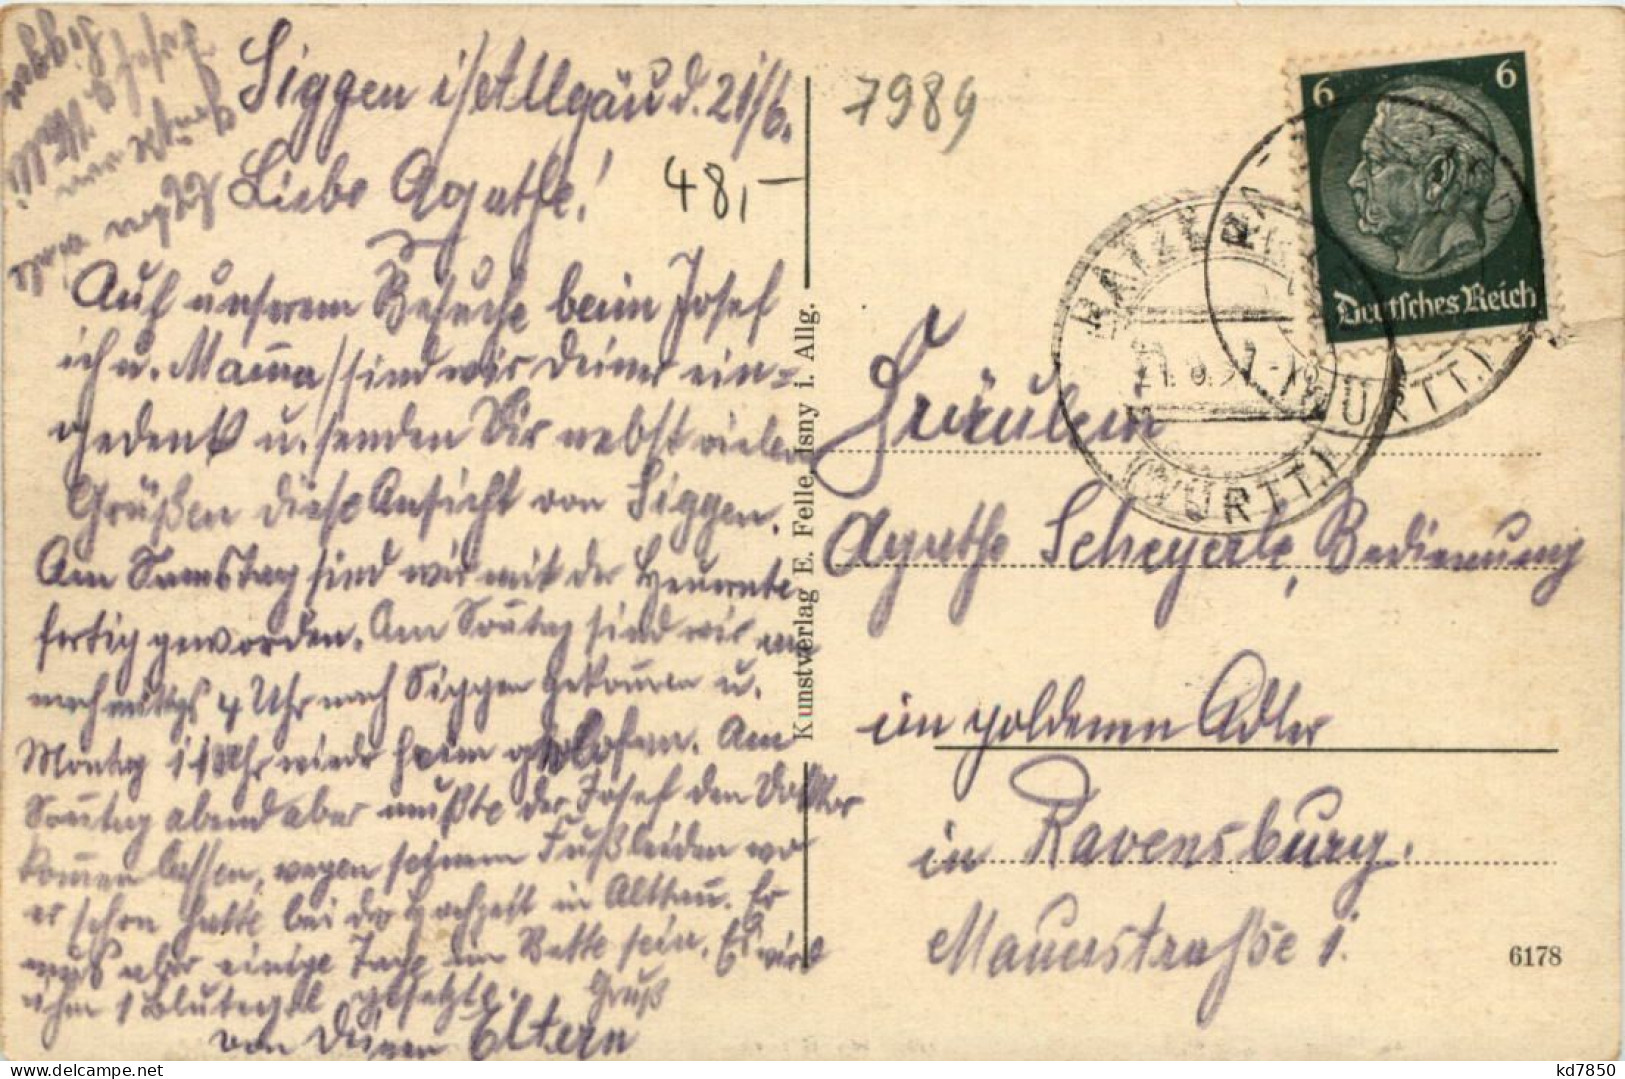 Siggen i/Allgäu d. 21/6.
Liebe Agathe!
Auf unserem Besuche beim Josef
ich u. Mama/sind wir Deiner ein=
gedenk u. senden Dir nebst vielen
Grüßen diese Ansicht von Siggen.
Am Samstag sind wir mit der Heuernte
fertig geworden. Am Sonntag sind wir
nachmittgs 4 Uhr nach Siggen gekommen u.
Montag 11 Uhr wieder heim geloffen. Am
Sonntag abend aber mußte der Josef den Doktor
kommen lassen, wegen seinem Fußleiden wo
er schon hatte bei der Hochzeit in Alttann. Er
mus aber einige Tage im Bette sein. Es wird
ihm 1 Blutegel gesetzt. Gruß
von Deinen Eltern
48,-
7989
Kunstverlag E. Felle, Isny i. Allg.
6 6
Deutsches Reich
RATZENRIED
(WÜRTT.)
Fräulein
Agathe Scheyerle, Bedienung
im goldenen Adler
in Ravensburg.
Mauerstraße 1.
6178
kd7850